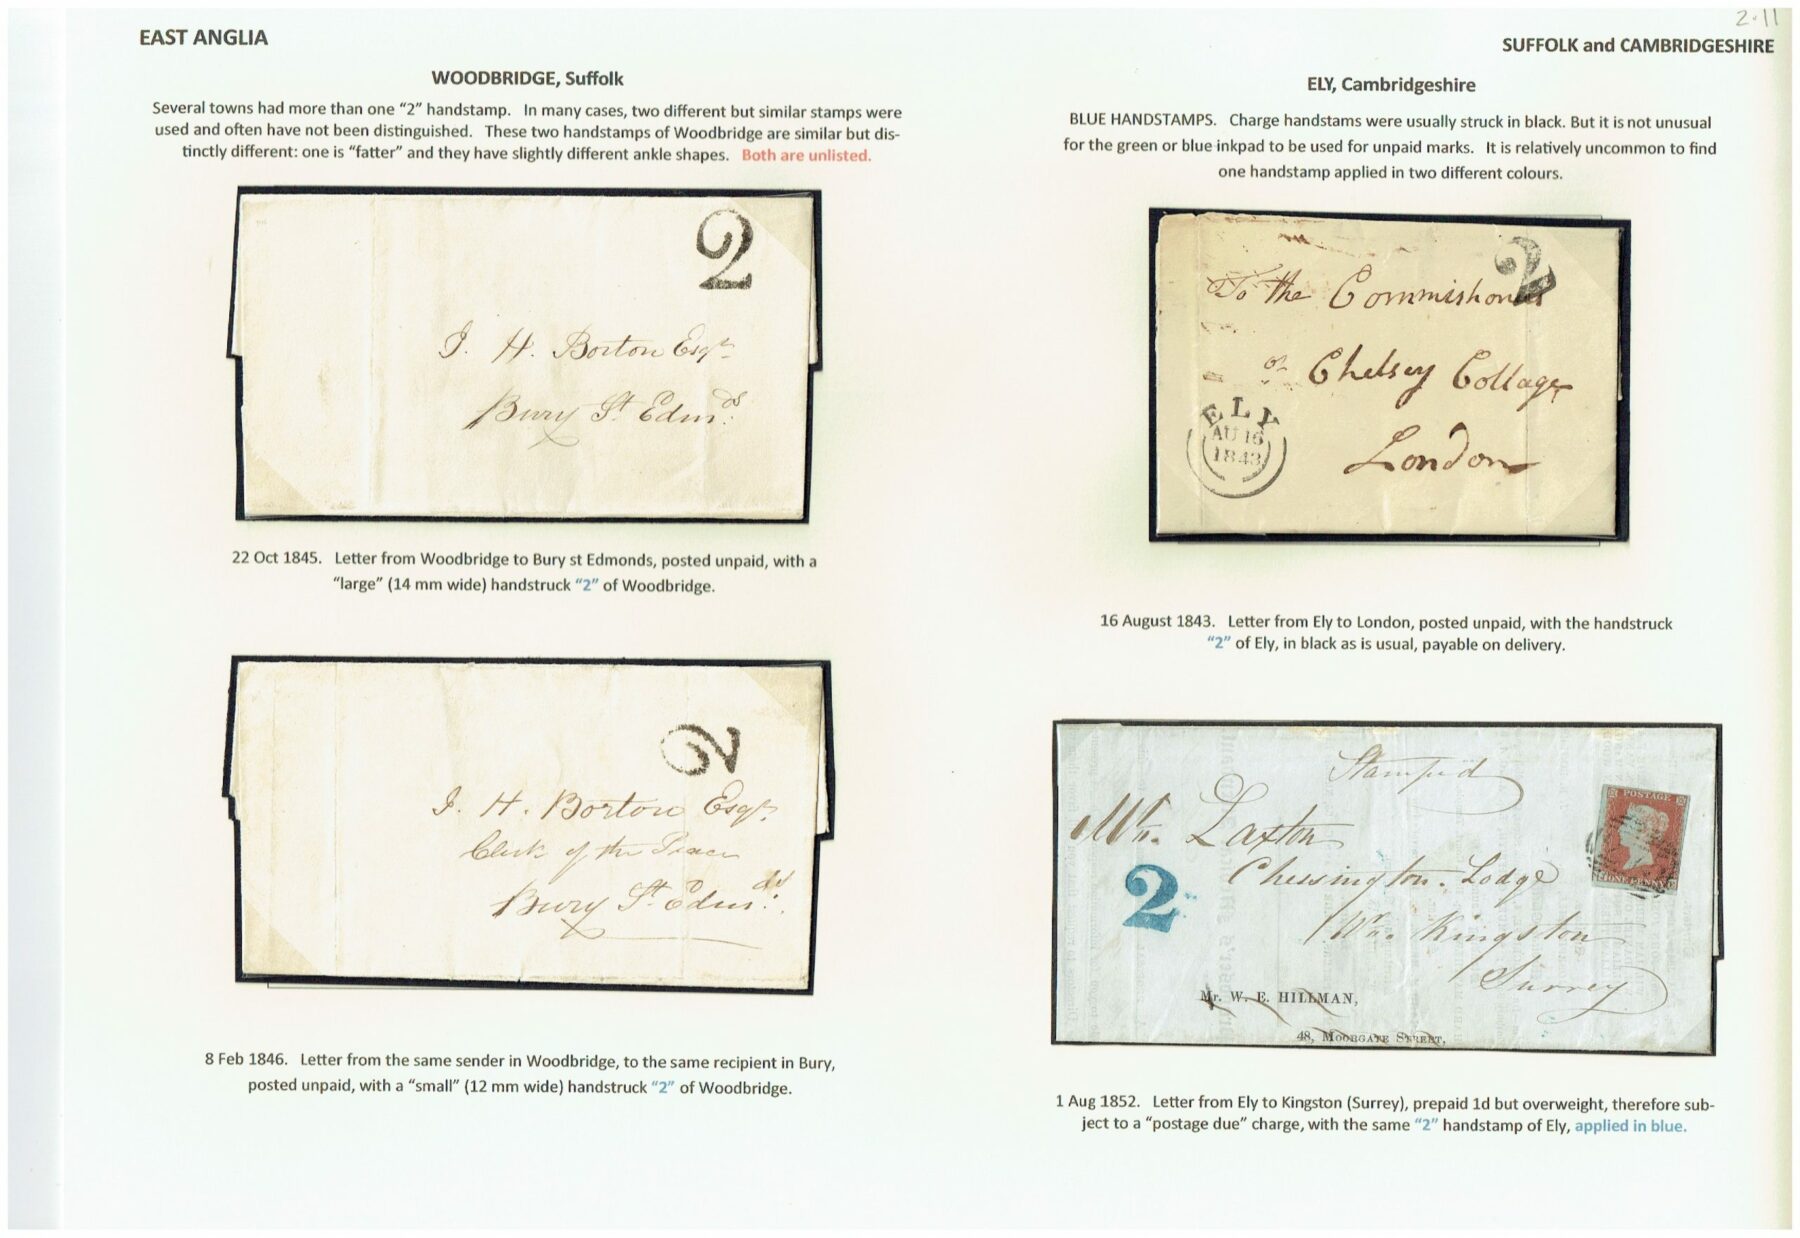 2.11
EAST ANGLIA
SUFFOLK and CAMBRIDGESHIRE
WOODBRIDGE, Suffolk
Several towns had more than one “2” handstamp. In many cases, two different but similar stamps were
used and often have not been distinguished. These two handstamps of Woodbridge are similar but dis-
tinctly different: one is “fatter” and they have slightly different ankle shapes. Both are unlisted.
2
J. H. Borton Esqr
Bury St Edmds.
22 Oct 1845. Letter from Woodbridge to Bury st Edmonds, posted unpaid, with a
“large” (14 mm wide) handstruck “2” of Woodbridge.
2
J. H. Borton Esqr.
Clerk of the Peace
Bury St Edmds.
8 Feb 1846. Letter from the same sender in Woodbridge, to the same recipient in Bury,
posted unpaid, with a “small” (12 mm wide) handstruck “2” of Woodbridge.
ELY, Cambridgeshire
BLUE HANDSTAMPS. Charge handstams were usually struck in black. But it is not unusual
for the green or blue inkpad to be used for unpaid marks. It is relatively uncommon to find
one handstamp applied in two different colours.
2
To the Commishoners
of Chelsey Collage
London
ELY
AU 16
1843
16 August 1843. Letter from Ely to London, posted unpaid, with the handstruck
“2” of Ely, in black as is usual, payable on delivery.
Stamped
POSTAGE
ONE PENNY
Mr. Laxton
2
Chessington Lodge
Nr. Kingston
Surrey
Mr. W. E. HILLMAN,
48, MOORGATE STREET,
1 Aug 1852. Letter from Ely to Kingston (Surrey), prepaid 1d but overweight, therefore sub-
ject to a “postage due” charge, with the same “2” handstamp of Ely, applied in blue.